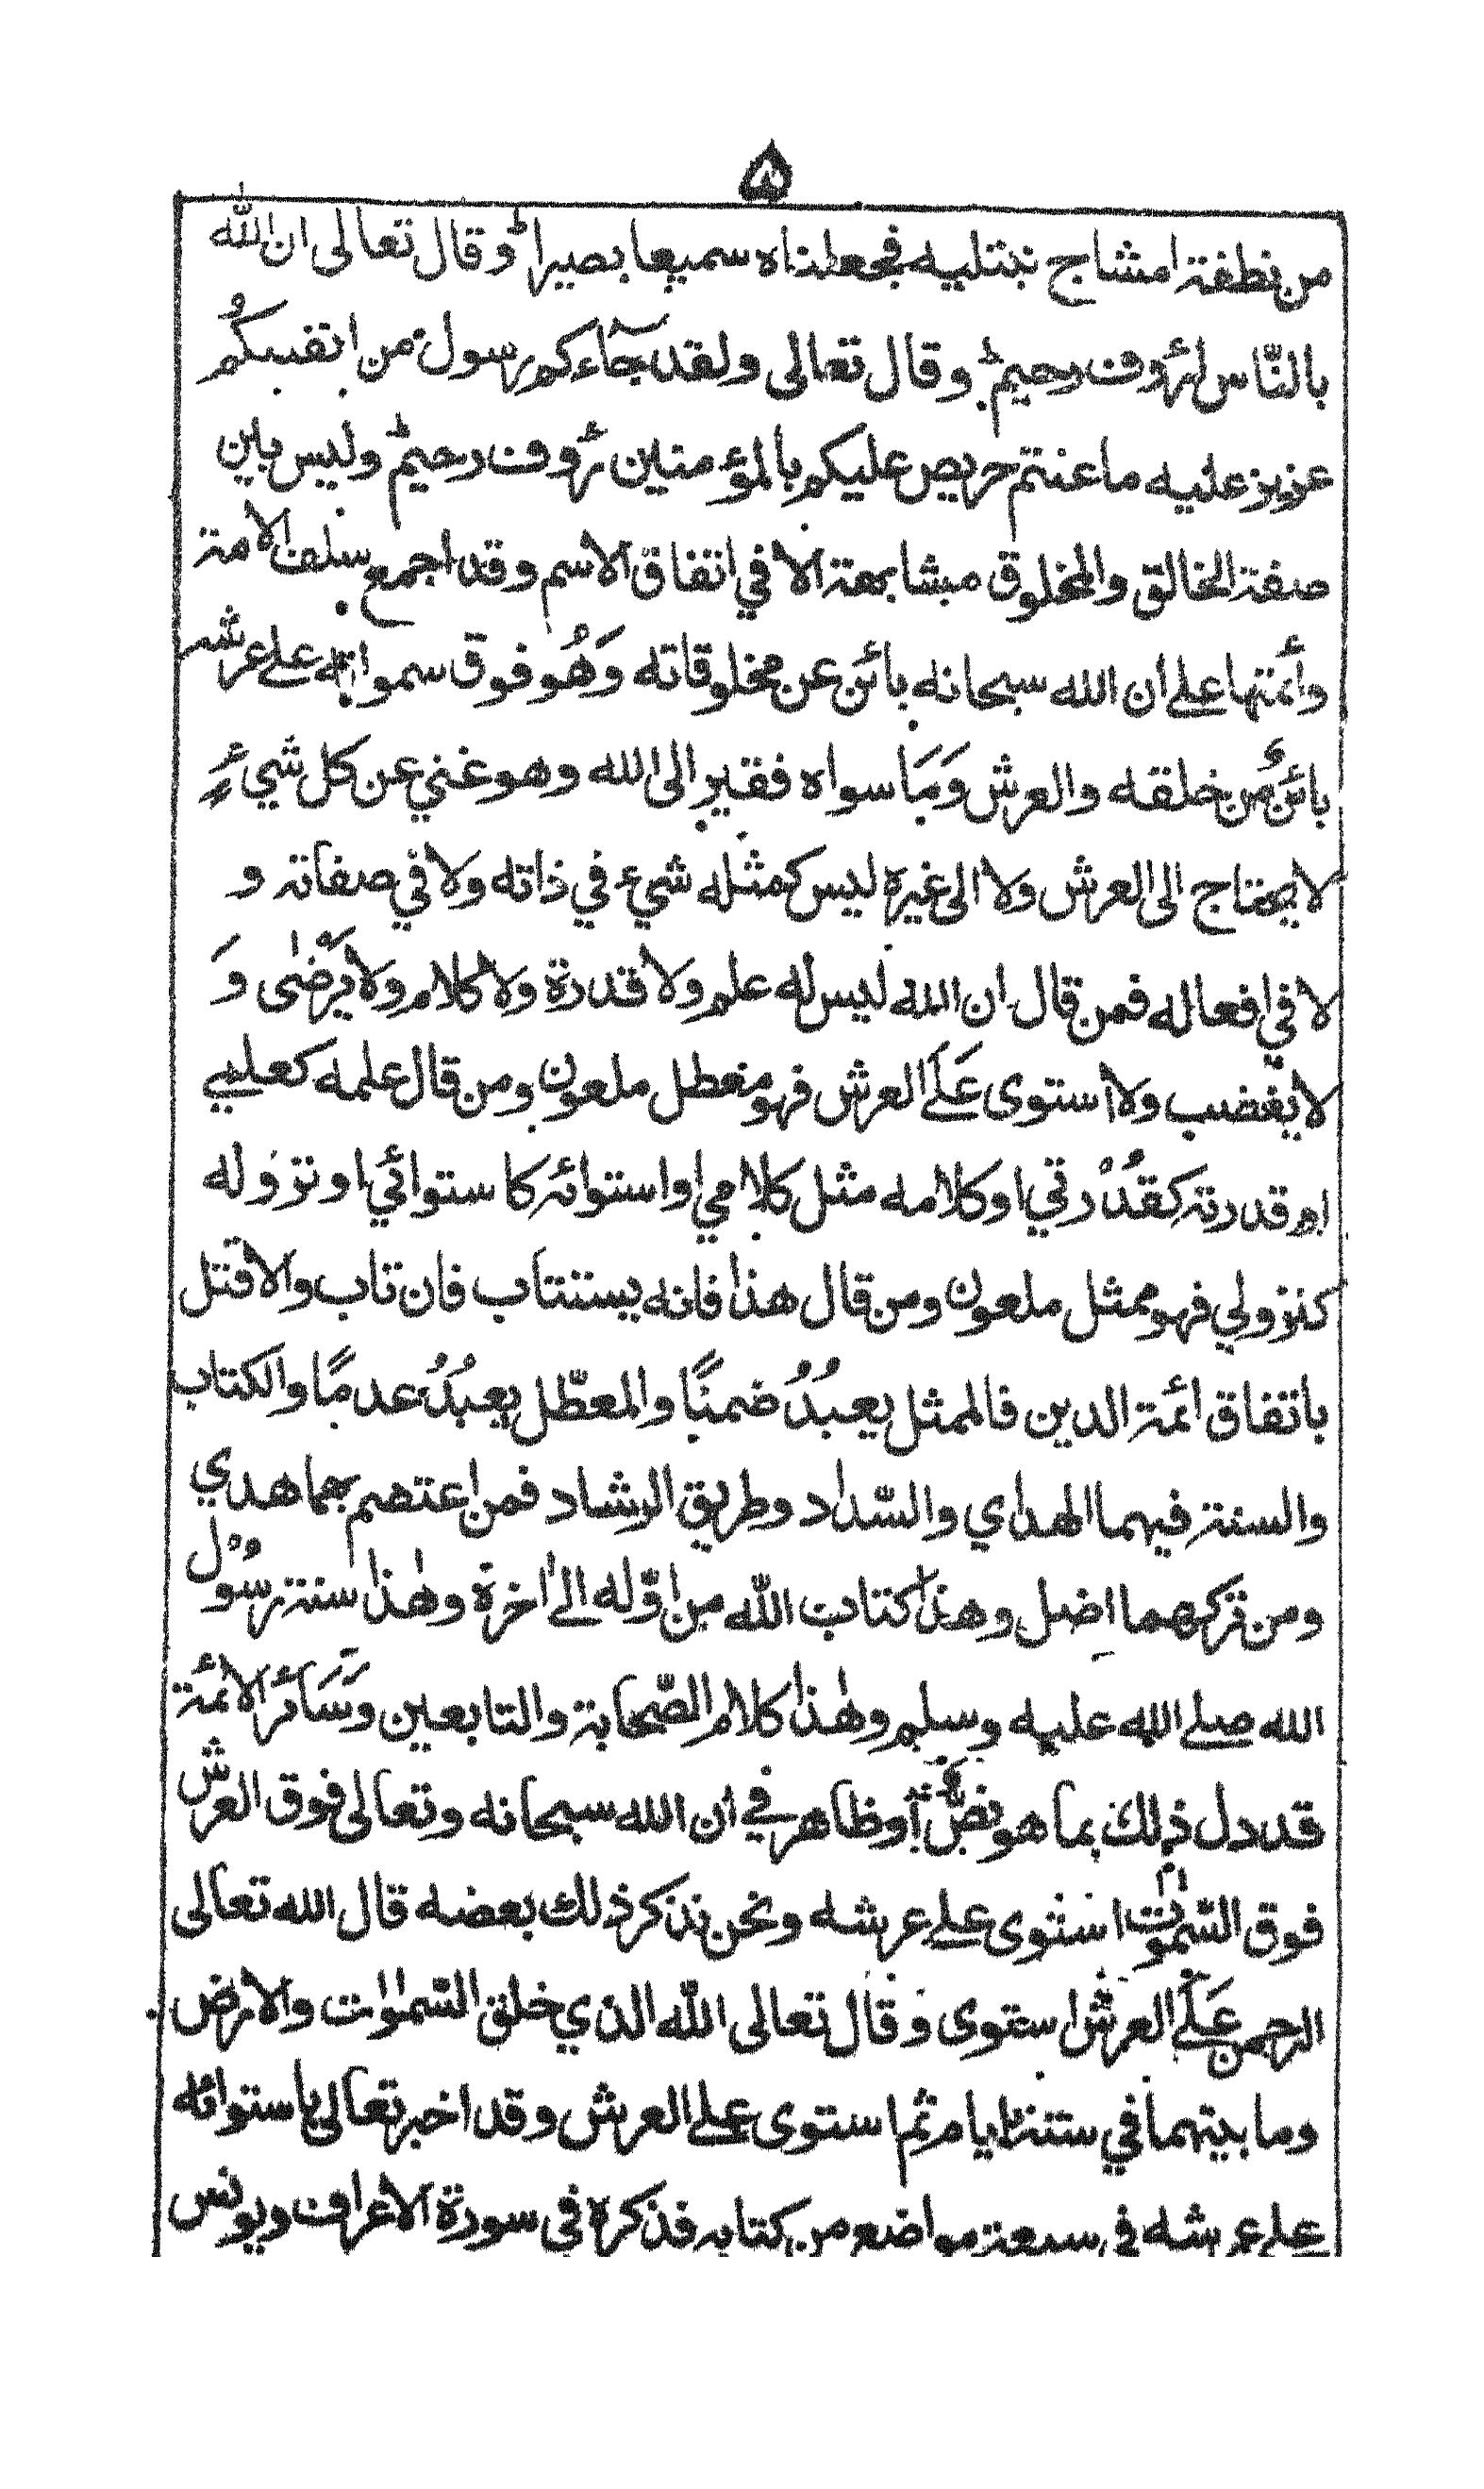 ۵
من نطفة امشاج نبتليه فجعلناه سميعا بصيرا ط وقال تعالى ان الله
بالنّاس لرؤف رحيم ط وقال تعالى ولقد جآءكم رسول من انفسكُم
عزيز عليه ما عنتم حريص عليكم بالمؤمنين رؤف رحيم ط وليس بين
صفة الخالق والمخلوق مشابهة الا في اتفاق الاسم وقد اجمع سلف الامة
وأئمتها على ان الله سبحانه بائن عن مخلوقاته وَهُو فوق سمواته على عرشه
بائن من خلقه والعرش وَمَا سواه فقير الى الله وهو غني عن كل شيءٍ
لا يحتاج الى العرش ولا الى غيره ليس كمثله شيء في ذاته ولا في صفاته و
لا في افعاله فمن قال ان الله ليس له علم ولا قدرة ولا كلام ولا يَرْضٰى وَ
لا يغضب ولا استوى عَلَى العرش فهو معطل ملعون ومن قال علمه كعلمي
او قدرته كقُدْرتي او كلامه مثل كلامي او استوائه كاستوائي او نزوله
كنزولي فهو ممثل ملعون ومن قال هذا فانه يستتاب فان تاب والا قتل
باتفاق ائمة الدين فالممثل يعبُدُ ضمنًا والمعطّل يعبُدُ عدمًا والكتاب
والسنة فيهما الهداي والسّداد وطريق الرشاد فمن اعتصم بهما هدي
ومن تركهما اضل وهذا كتاب الله من اوّله الى اخرة وهٰذا سنة رسُوْل
الله صلى الله عليه وسلم وهٰذا كلام الصّحابة والتابعين وسَآئر الائمة
قد دل ذلك بما هو نصٌّ او ظاهر في ان الله سبحانه وتعالى فوق العرش
فوق السّموٰت استوى على عرشه ونحن نذكر ذلك بعضه قال الله تعالى
الرحمن عَلَى العرش استوى وَقال تعالى الله الذي خلق السّمٰوٰت والارض
وما بينهما في ستة ايام ثم استوى على العرش وقد اخبر تعالى باستوائه
على عرشه في سبعة مواضع من كتابه فذكره في سورة الاعراف ويونس